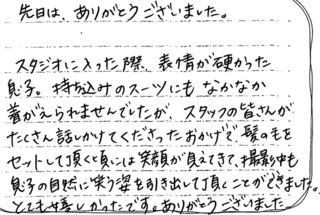 先日は、ありがとうございました。
スタジオに入った際、表情が硬かった
息子。持ち込みのスーツにも なかなか
着がえられませんでしたが、スタッフの皆さんが
たくさん話しかけてくださったおかげで、髪の毛を
セットして頂く頃には笑顔が見えてきて、撮影中も
息子の自然に笑う姿を引き出して頂くことができました。
とても嬉しかったです。ありがとうございました